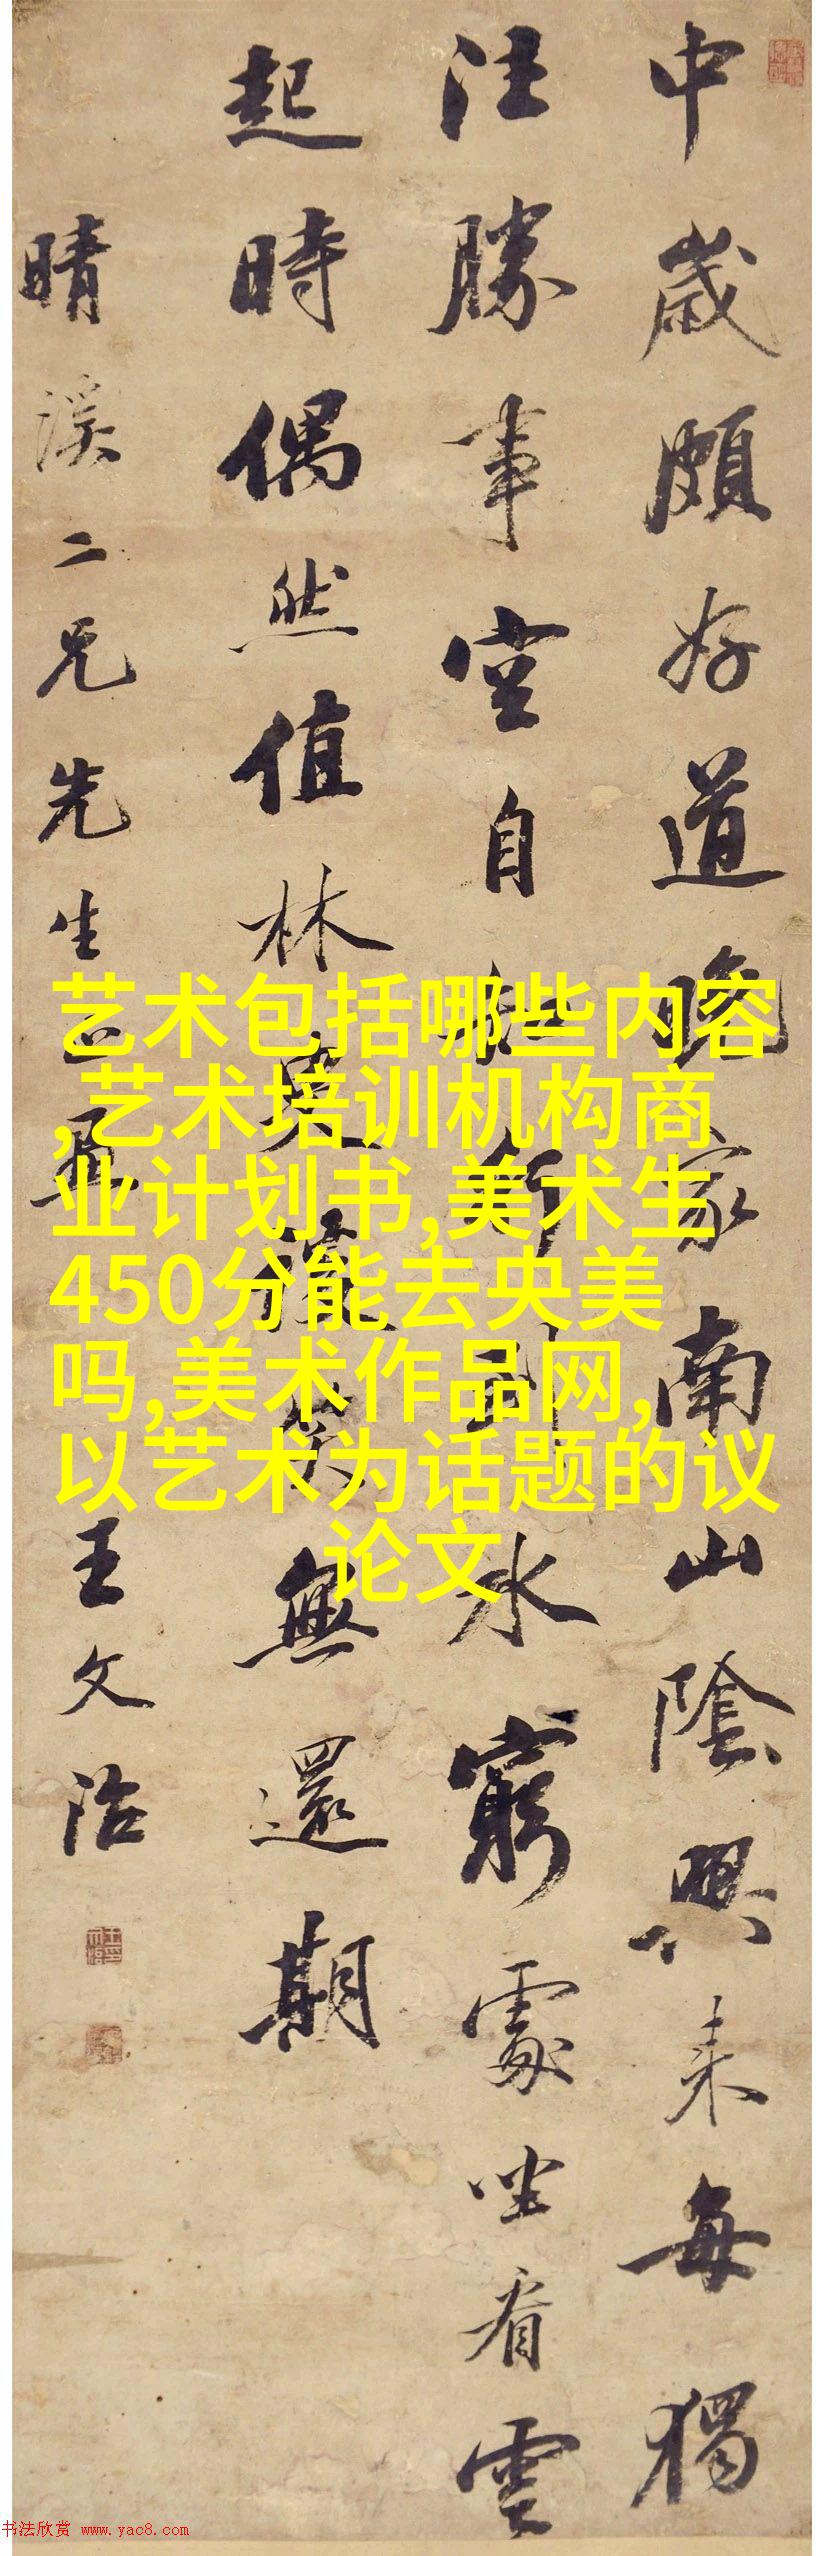 中歲頗好道晚家南山陰興来每獨
往勝事空自知行到水窮處坐看雲
起時偶然值林叟談笑無還期
晴溪二兄先生
王文治
艺术包括哪些内容
,艺术培训机构商
业计划书,美术生
450分能去央美
吗,美术作品网,
以艺术为话题的议
论文
书法欣赏 www.yac8.com